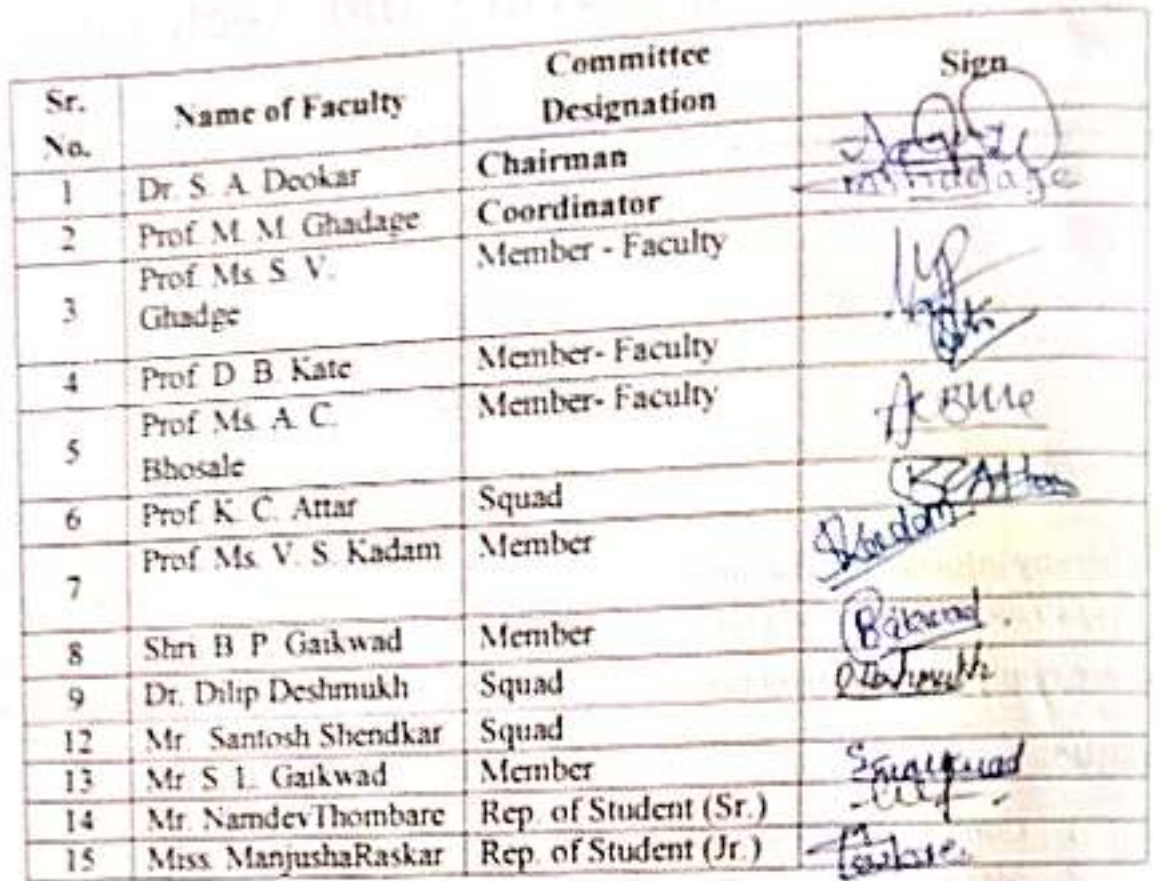 Sr. No. Name of Faculty Committee Designation Sign
1 Dr. S. A. Deokar Chairman
2 Prof. M. M. Ghadage Coordinator mmghadage
3 Prof. Ms. S. V. Ghadge Member - Faculty
4 Prof. D. B. Kate Member- Faculty
5 Prof. Ms. A. C. Bhosale Member- Faculty
6 Prof. K. C. Attar Squad
7 Prof. Ms. V. S. Kadam Member Kadam
8 Shri. B. P. Gaikwad Member
9 Dr. Dilip Deshmukh Squad
12 Mr. Santosh Shendkar Squad
13 Mr. S. L. Gaikwad Member
14 Mr. NamdevThombare Rep. of Student (Sr.)
15 Miss. ManjushaRaskar Rep. of Student (Jr.)